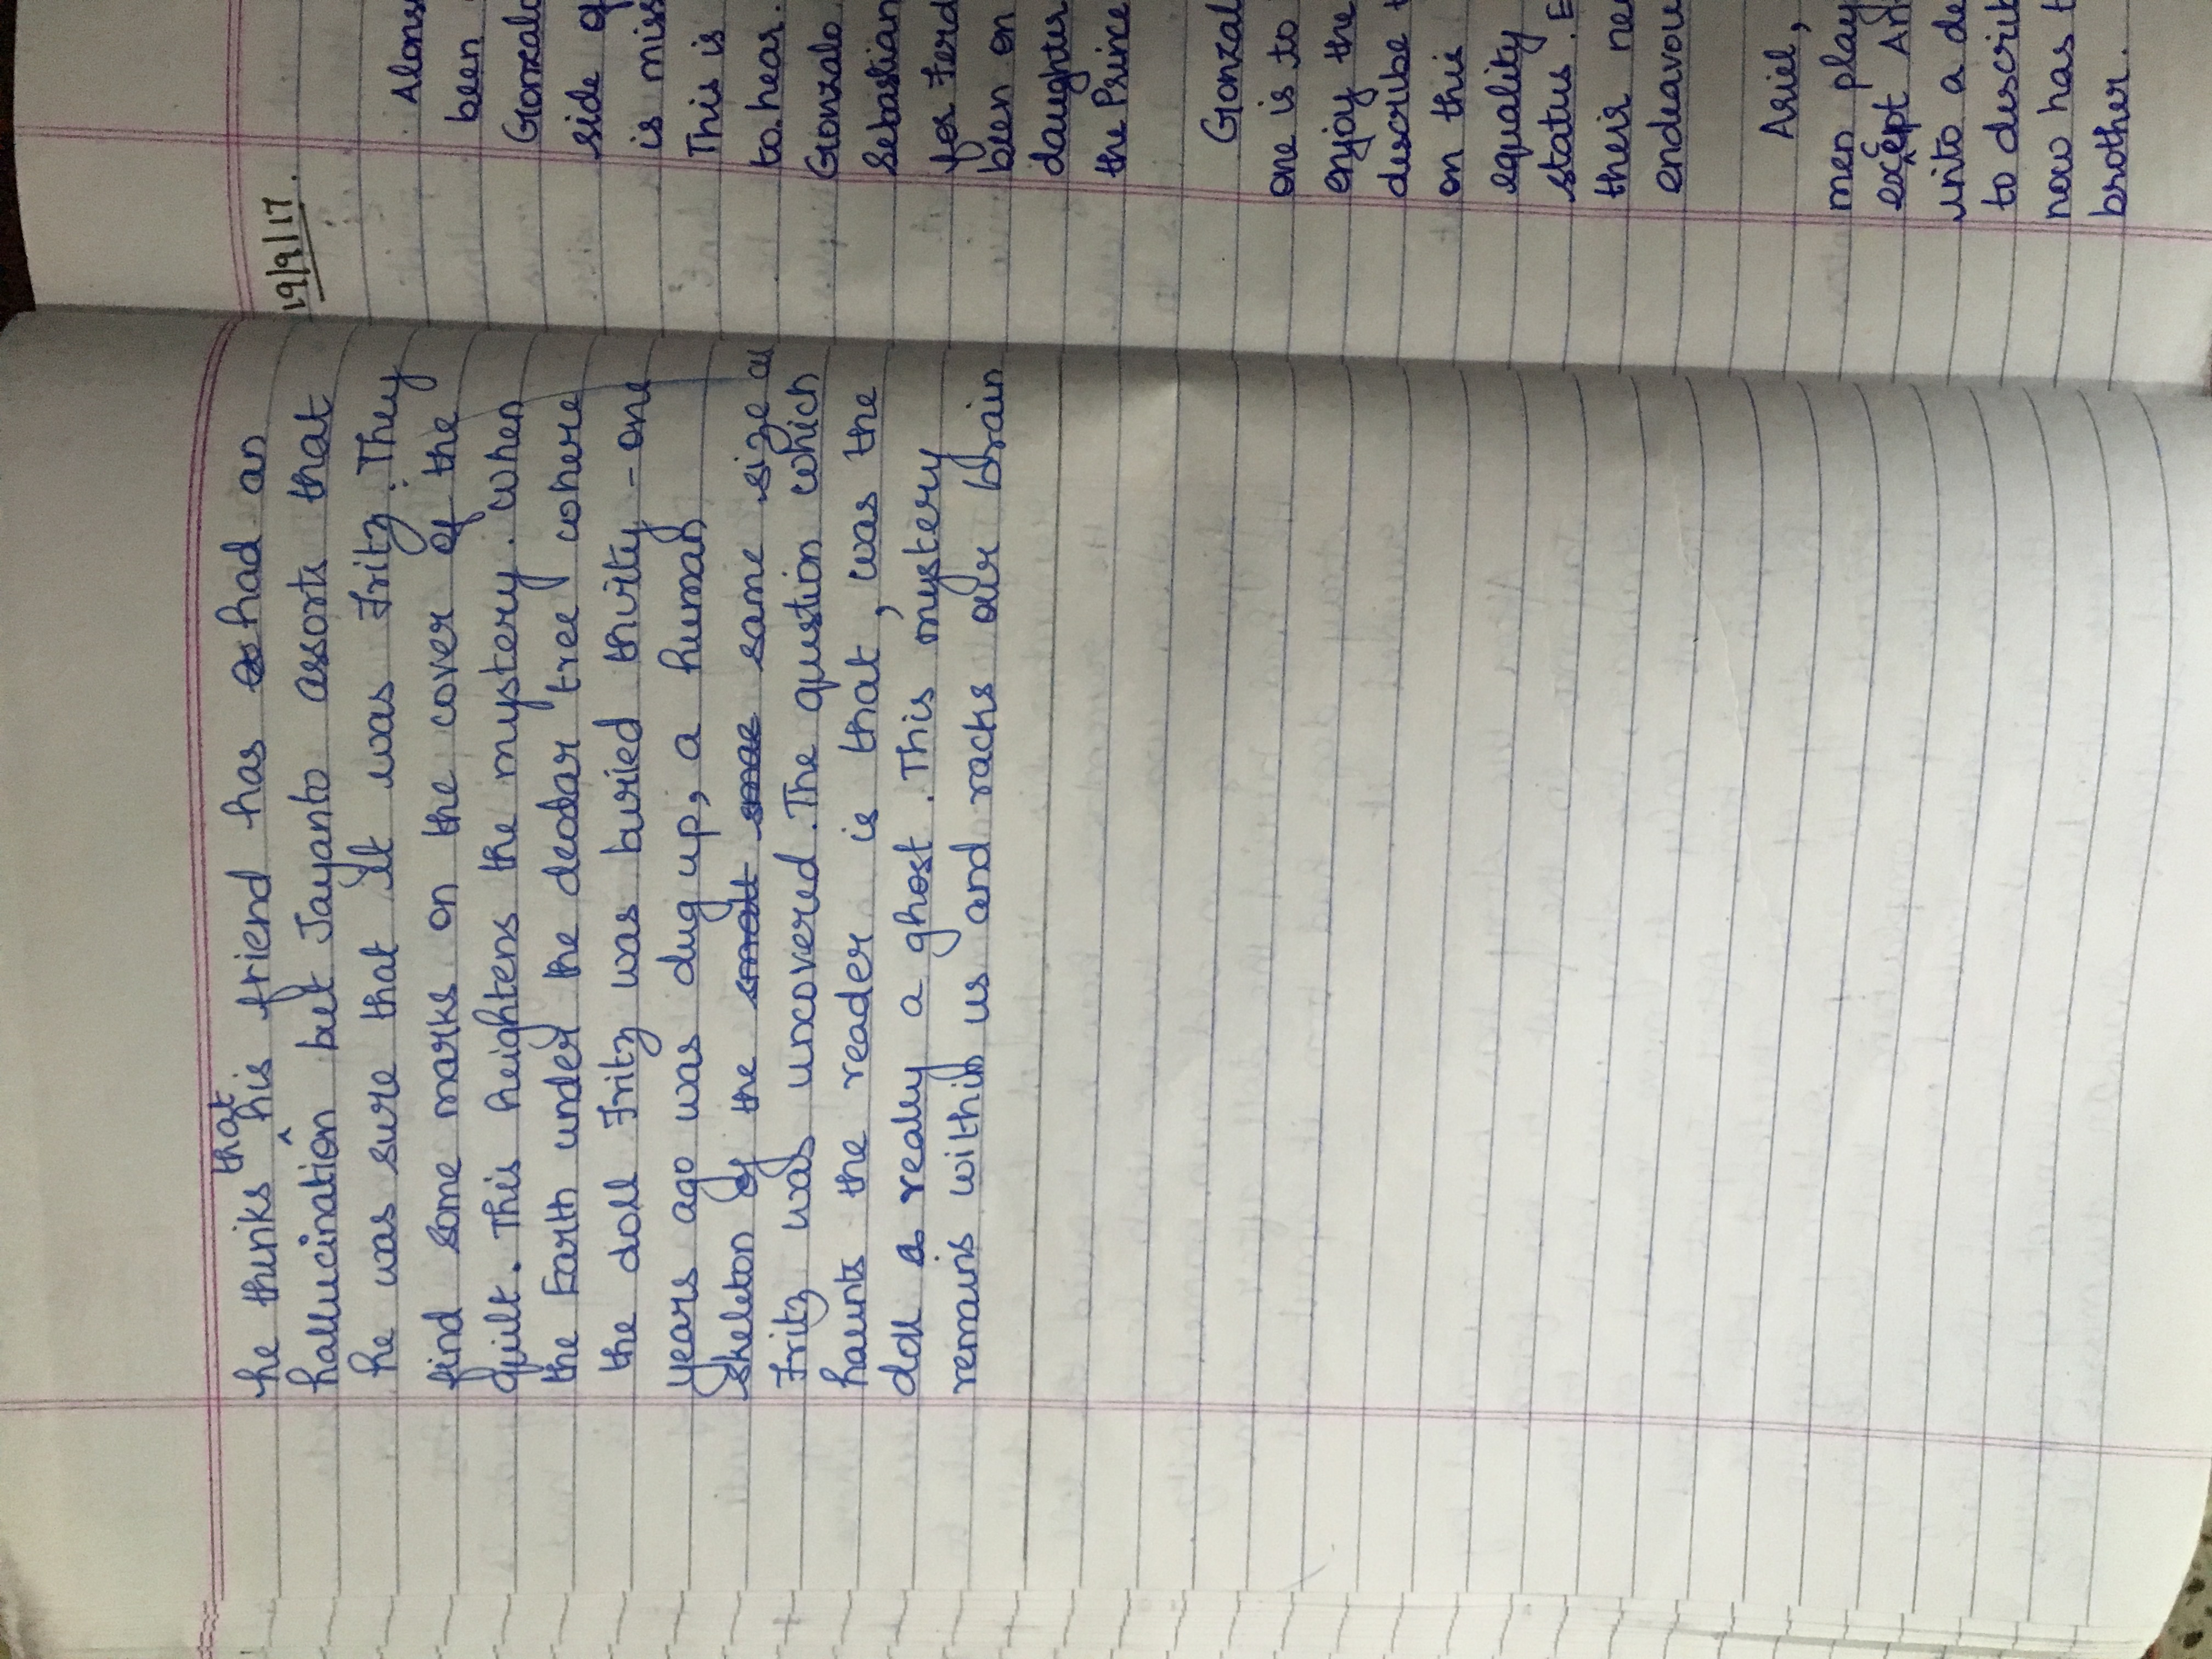 he thinks that his friend has had an
hallucination but Jayanto assorts that
he was sure that it was Fritz. They
find some marks on the cover of the
quilt. This heightens the mystery. When
the Earth under the deodar tree where
the doll Fritz was buried thirty-one
years ago was dug up, a human
skeleton of the small smae same size as
Fritz was uncovered. The question which
haunts the reader is that, was the
doll a really a ghost. This mystery
remains within us and racks our brain
19/9/17.
Alons
been
Gonzalo
side of
is miss
This is
to hear.
Gonzalo
Sebastian
for Ferd
been on
daughter
the Prince
Gonzal
one is to
enjoy the
describe t
on this
equality
status. E
their ne
endeavou
Ariel,
men play
except An
into a de
to describ
now has t
brother.